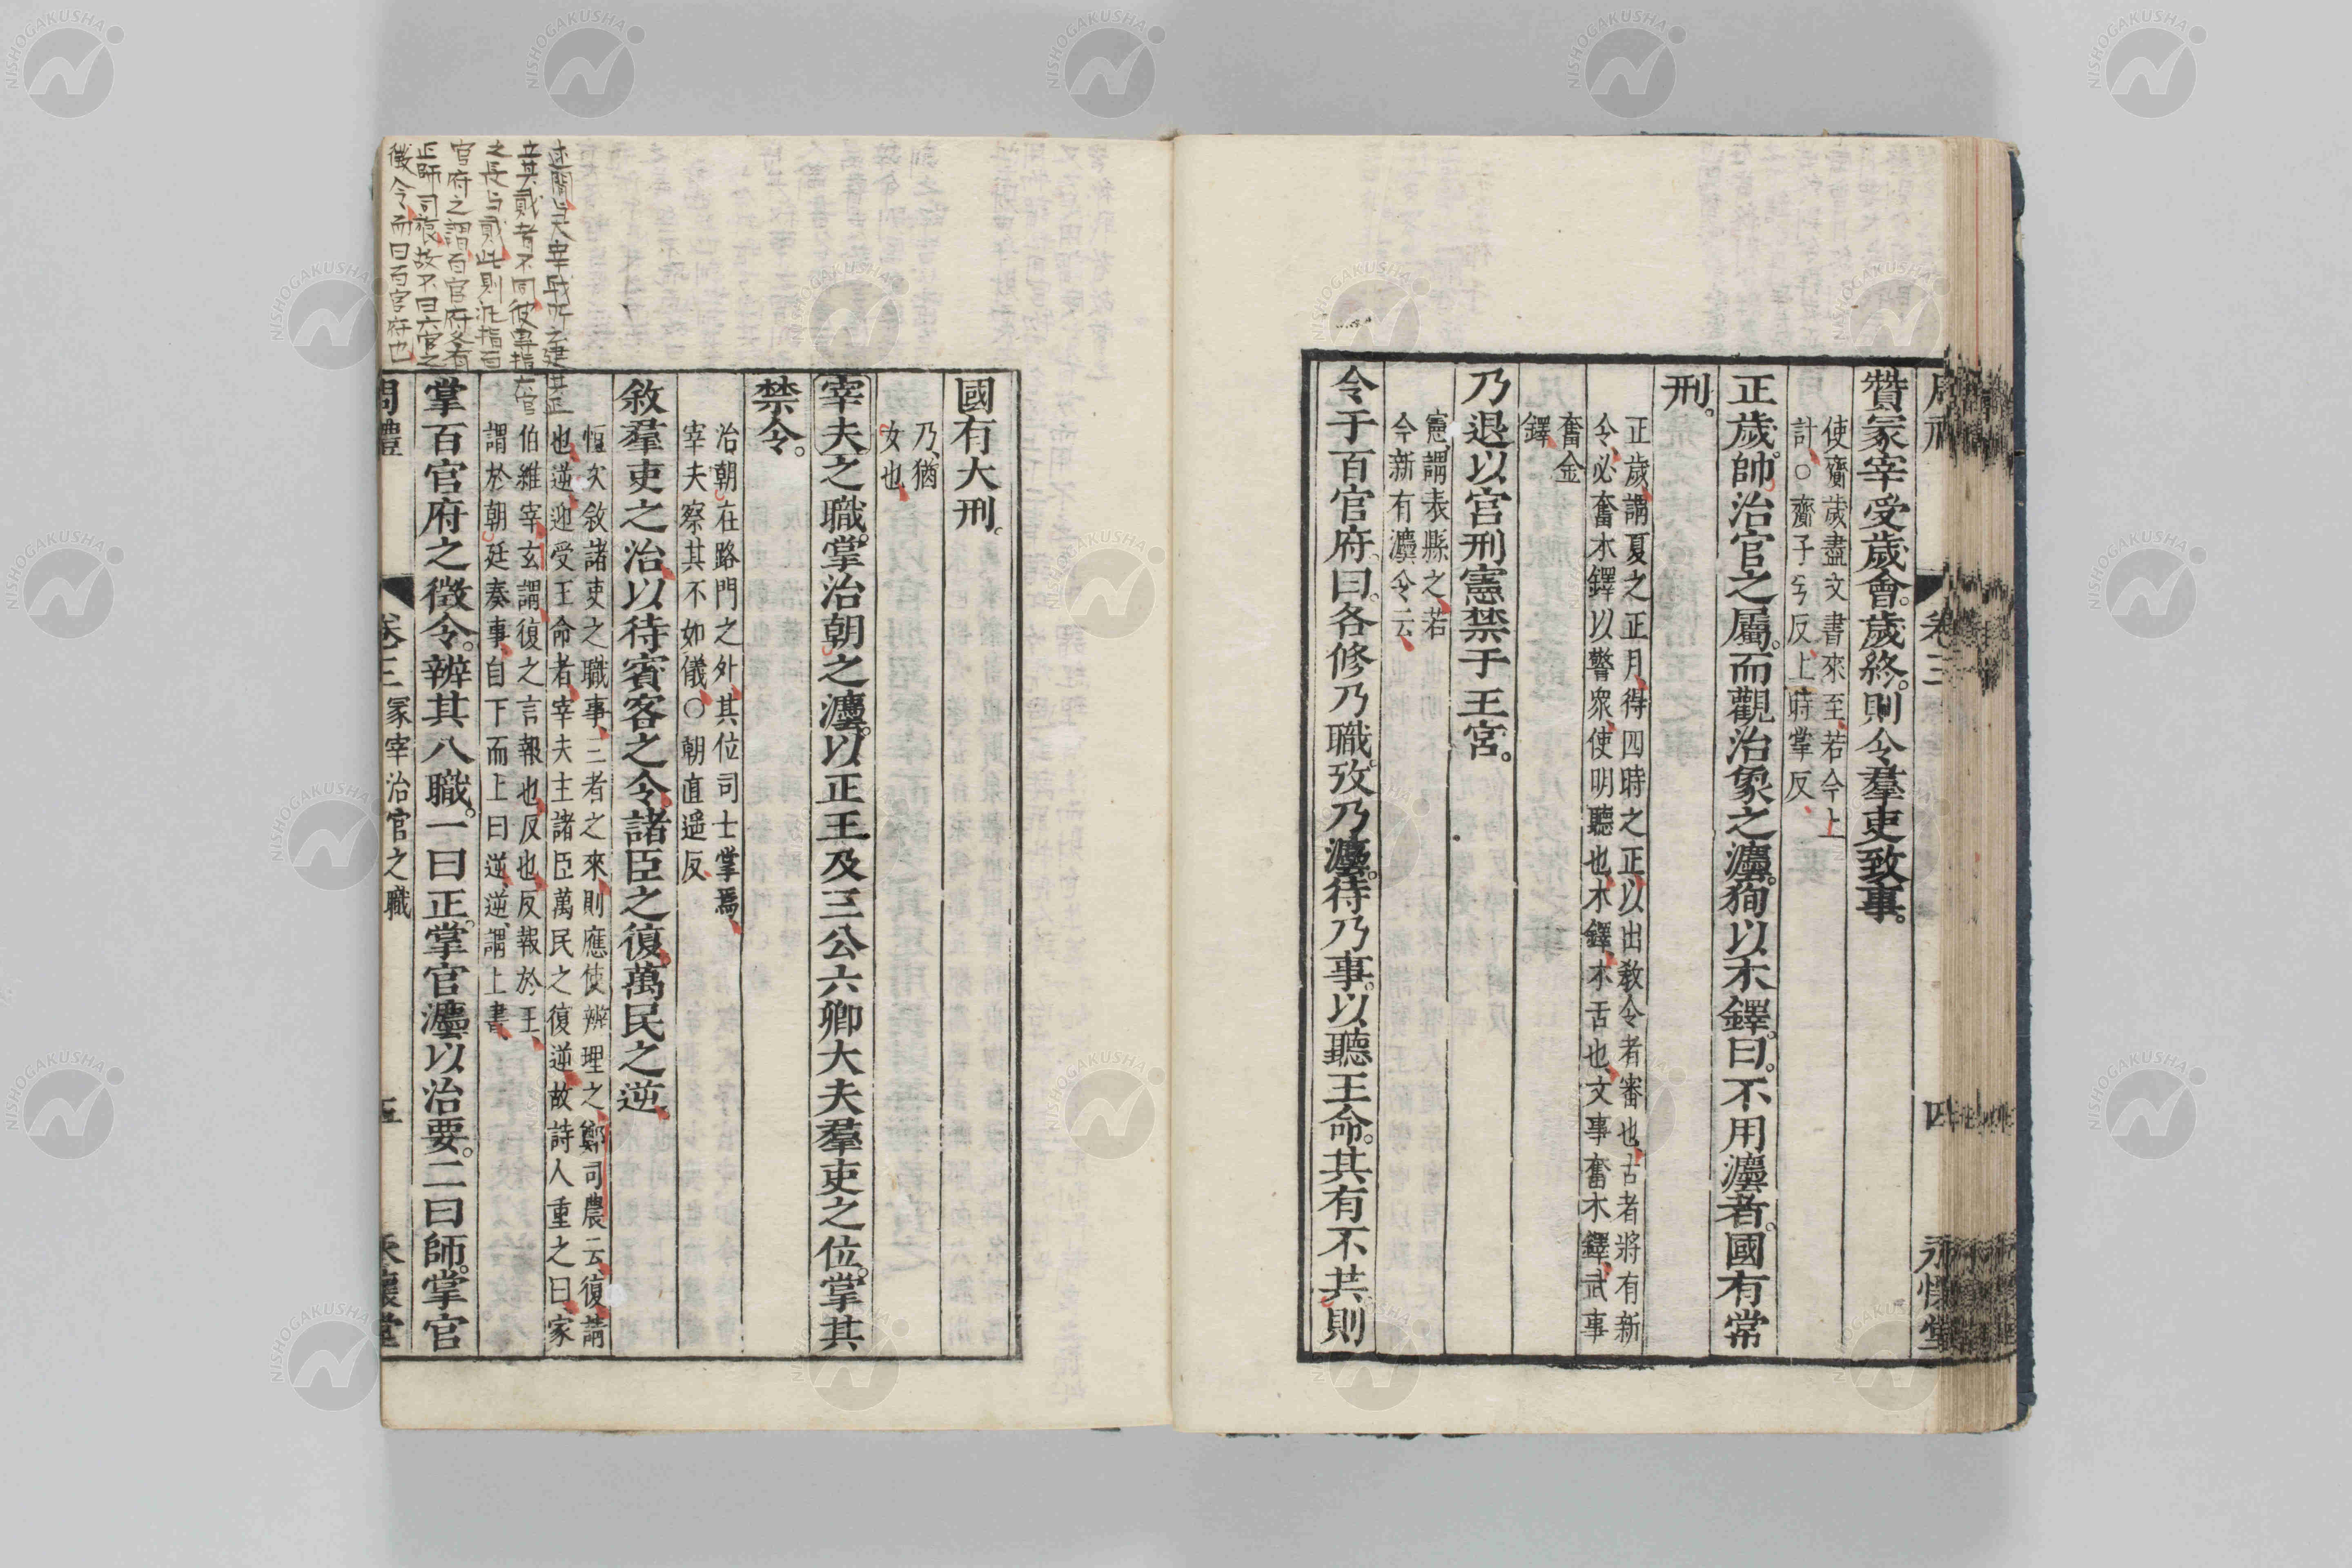 周禮
卷三
四
永懷堂
贊冢宰受歲會。歲終。則令羣吏致事。
使齎歲盡文書來至、若今上
計、○齎子兮反、上時掌反、
正歲。帥治官之屬。而觀治象之灋。徇以木鐸。曰。不用灋者。國有常
刑。
正歲、謂夏之正月、得四時之正、以出敎令者審也、古者將有新
令、必奮木鐸以警衆、使明聽也、木鐸、木舌也、文事奮木鐸、武事
奮金
鐸、
乃退以宮刑憲禁于王宮。
憲、謂表縣之、若
今新有灋令云、
令于百官府。曰。各修乃職。攷乃灋。待乃事。以聽王命。其有不共。則
國有大刑。
乃、猶
女也、
宰夫之職。掌治朝之灋。以正王及三公六卿大夫羣吏之位。掌其
禁令。
治朝、在路門之外、其位司士掌焉、
宰夫察其不如儀、○朝直遥反、
敘羣吏之治、以待賓客之令、諸臣之復、萬民之逆、
恒次敘諸吏之職事、三者之來、則應使辨理之、鄭司農云、復、請
也、逆、迎受王命者、宰夫主諸臣萬民之復逆、故詩人重之曰、家
伯維宰、玄謂、復之言報也、反也、反報於王、
謂於朝廷奏事、自下而上曰逆、逆、謂上書、
掌百官府之徵令。辨其八職。一曰正。掌官灋以治要。二曰師。掌官
周禮
卷三 冢宰治官之職
五
永懷堂
述聞、與大宰職所云建其正
立其貳者不同、彼專指六官
之長与貳、此則汎指百
官府之謂、百官府各有
正師司旅、故不曰六官之
徵令、而曰百官府也
NISHOGAKUSHA